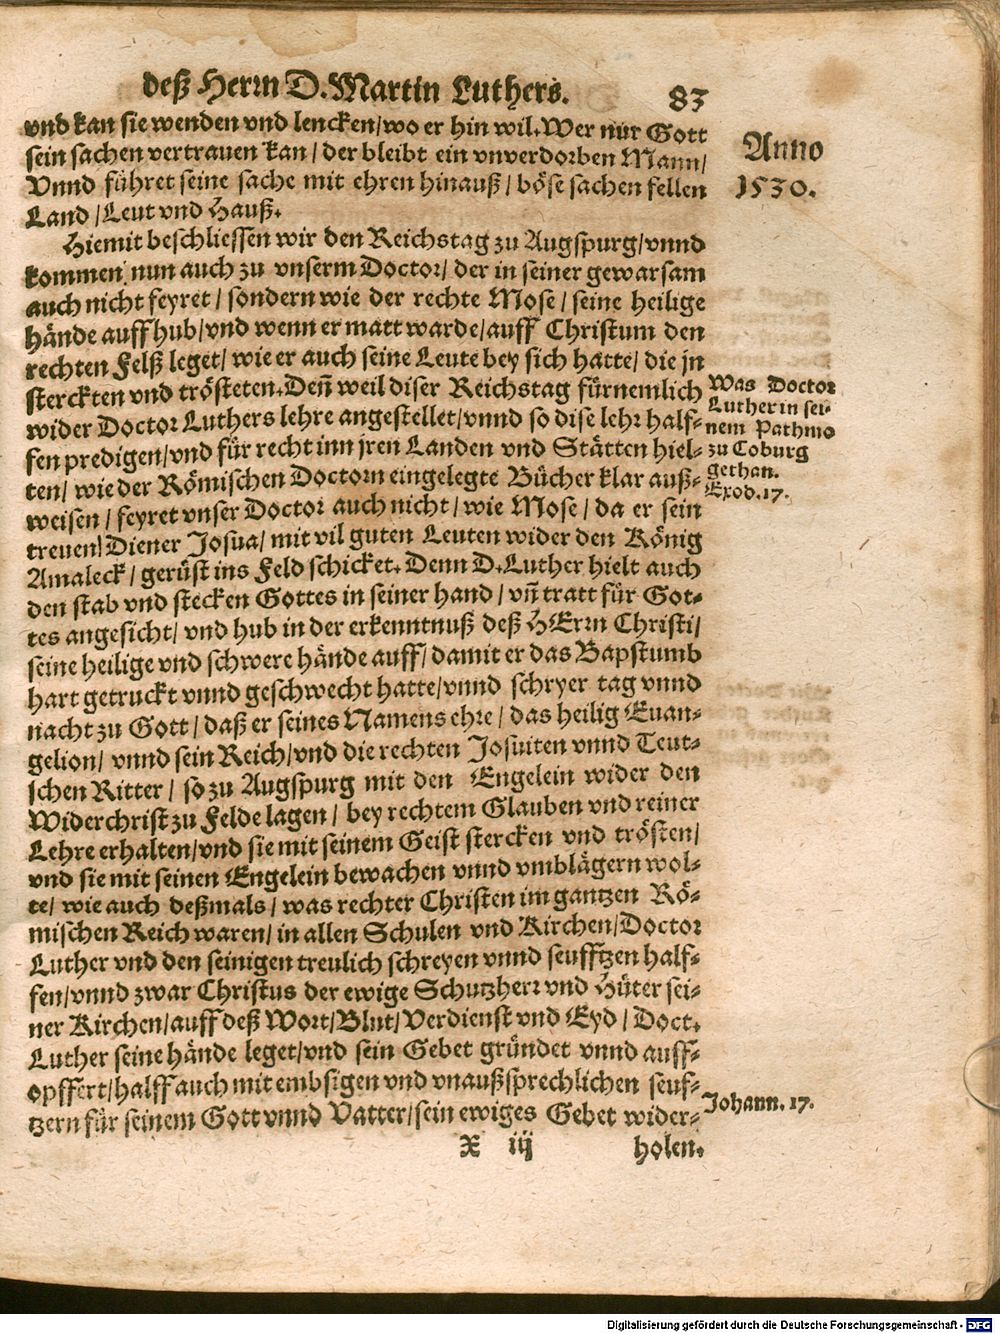 deß Herrn D. Martin Luthers. 83
vnd kan sie wenden vnd lencken/ wo er hin wil. Wer nur Gott
sein sachen vertrauen kan / der bleibt ein vnverdorben Mann/
Vnnd führet seine sache mit ehren hinauß / böse sachen fellen
Land / Leut vnd Hauß.
Anno
1530.
Hiemit beschliessen wir den Reichstag zu Augspurg/ vnnd
kommen nun auch zu vnserm Doctor/ der in seiner gewarsam
auch nicht feyret / sondern wie der rechte Mose / seine heilige
hände auff hub/ vnd wenn er matt warde/ auff Christum den
rechten Felß leget/ wie er auch seine Leute bey sich hatte/ die jn
sterckten vnd trösteten. Deñ weil diser Reichstag fürnemlich
wider Doctor Luthers lehre angestellet/ vnnd so dise lehr half-
fen predigen/ vnd für recht inn jren Landen vnd Stätten hiel-
ten/ wie der Römischen Doctorn eingelegte Bücher klar auß-
weisen / feyret vnser Doctor auch nicht/ wie Mose / da er sein
treuen Diener Josua/ mit vil guten Leuten wider den König
Amaleck / gerüst ins Feld schicket. Denn D. Luther hielt auch
den stab vnd stecken Gottes in seiner hand / vñ tratt für Got-
tes angesicht/ vnd hub in der erkenntnuß deß HErrn Christi/
seine heilige vnd schwere hände auff/ damit er das Bapstumb
hart getruckt vnnd geschwecht hatte/ vnnd schryer tag vnnd
nacht zu Gott / daß er seines Namens ehre / das heilig Euan-
gelion/ vnnd sein Reich/ vnd die rechten Josuiten vnnd Teut-
schen Ritter / so zu Augspurg mit den Engelein wider den
Widerchrist zu Felde lagen / bey rechtem Glauben vnd reiner
Lehre erhalten/ vnd sie mit seinem Geist stercken vnd trösten/
vnd sie mit seinen Engelein bewachen vnnd vmblägern wol-
te/ wie auch deßmals / was rechter Christen im gantzen Rö-
mischen Reich waren/ in allen Schulen vnd Kirchen/ Doctor
Luther vnd den seinigen treulich schreyen vnnd seufftzen half-
fen/ vnnd zwar Christus der ewige Schutzherr vnd Hüter sei-
ner Kirchen/ auff deß Wort/ Blut/ Verdienst vnd Eyd / Doct.
Luther seine hände leget/ vnd sein Gebet gründet vnnd auff-
opffert/ halff auch mit embsigen vnd vnaußsprechlichen seuf-
tzern für seinem Gott vnnd Vatter/ sein ewiges Gebet wider-
Was Doctor
Luther in sei-
nem Pathmo
zu Coburg
gethan.
Exod. 17.
Johann. 17.
X iij holen.
Digitalisierung gefördert durch die Deutsche Forschungsgemeinschaft - DFG